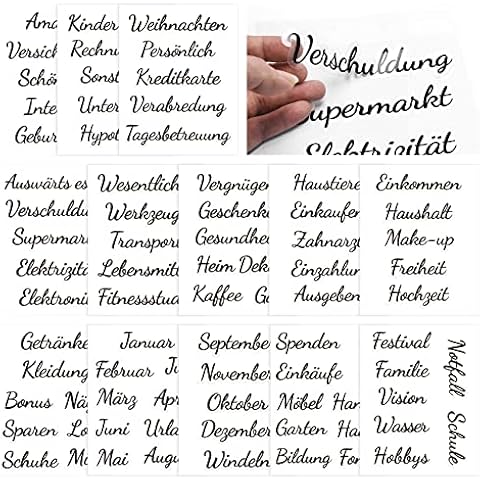 Ama
Versich
Schön
Inte
Gebur
Kinder
Rechnu
Sonst
Unter
Hypot
Weihnachten
Persönlich
Kreditkarte
Verabredung
Tagesbetreuung
Verschuldung
Supermarkt
Elektrizität
Auswärts es
Verschuldu
Supermar
Elektrizitä
Elektroni
Wesentlich
Werkzeug
Transpor
Lebensmitt
Fitnessstua
Vergnüge
Geschenk
Gesundhe
Heim Dek
Kaffee Ge
Haustiere
Einkaufen
Zahnarz
Einzahlun
Ausgeben
Einkommen
Haushalt
Make-up
Freiheit
Hochzeit
Getränke
Kleidung
Bonus Nä
Sparen Lo
Schuhe Mo
Januar
Februar Ju
März Apr
Juni Urla
Mai Augu
September
November
Oktober
Dezember
Windeln
Spenden
Einkäufe
Möbel Han
Garten Ha
Bildung For
Festival
Familie
Vision
Wasser
Hobbys
Notfall
Schule